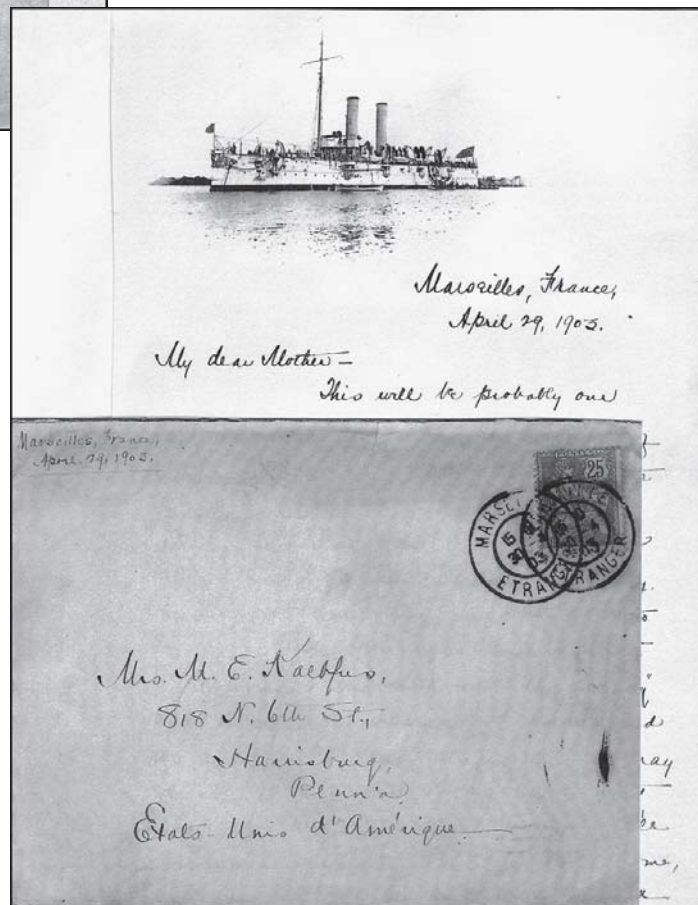 Marseilles, France,
April 29, 1903.
My dear Mother –
This will be probably one
Marseilles, France,
April 29, 1903.
25
MARSEILLE
ETRANGER
Mrs. M. E.
818 N. 6th St.,
Harrisburg,
Penn'a
États-Unis d'Amérique
ay
me,